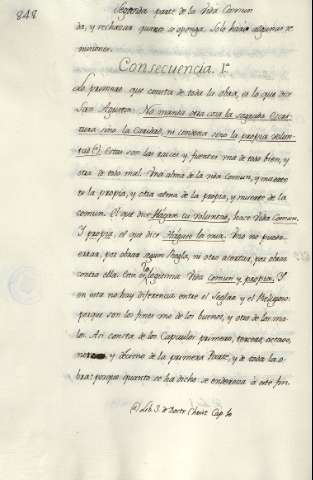 848
Segunda parte de la Vida Comun
da, y rechazar quanto se oponga. Solo haré algunas re
misiones.
Consecuencia. 1ª
La primera que consta de toda la obra, es la que dice
San Agustin. No manda otra cosa la sagrada Escri
tura sino la Caridad, ni condena sino la propia volun
tad (a). Estas son las raices y fuentes una de todo bien, y
otra de todo mal. Una alma de la vida Comun, y muerte
de la propia, y otra alma de la propia, y muerte de la
comun. El que dice Hágase tu voluntad, hace Vida Comun,
Y propia, el que dice Hágase la mia. Una no puede
errar, por obrar segun Regla, ni otra acertar, por obrar
contra ella. Con legitima Vida comun y propia. Y
en esto no hay diferencia entre el Seglar y el Religioso
porque son los fines uno de los buenos, y otro de los ma
los. Asi consta de los Capitulos primero, tercero, octavo,
y decimo de la primera Parte, y de toda la o
bra: porque quanto se ha dicho se endereza á este fin.
(a) Lib. 3. de Doctr. Christ. Cap. 10